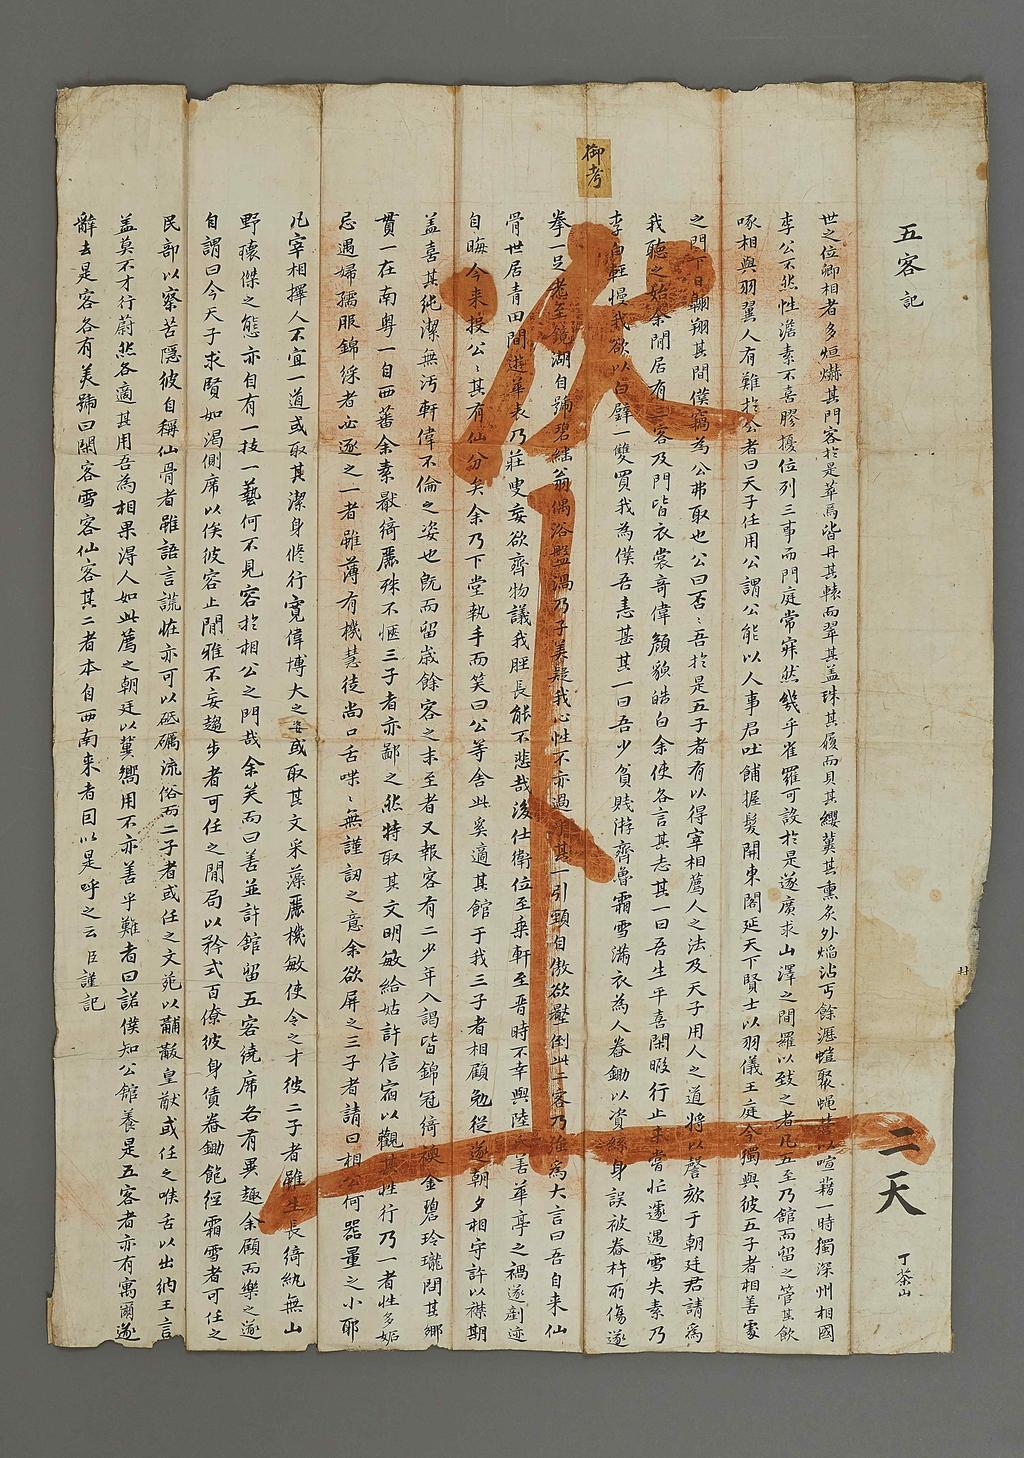 五客記
二天
丁茶山
御考
次上
世之位卿相者多烜爀其門客於是華焉皆丹其轅而翠其盖珠其履而貝其纓冀其熏炙外焰沾丐餘瀝螘聚蝇以喧藉一時獨深州相國
李公不然性澹素不喜膠擾位列三事而門庭常寂然幾乎雀羅可設於是遂廣求山澤之間羅以致之者凡五至乃館而留之管其飲
啄相與羽翼人有難於公者曰天子任用公謂公能以人事君吐餔握髮開東閣延天下賢士以羽儀王庭今獨與彼五子者相善
之門下日翺翔其間僕竊為公弗取也公曰否〻吾於是五子者有以得宰相薦人之法及天子用人之道將以謦欬于朝廷君請爲
我聽之始余閒居有三客及門皆衣裳奇偉顏貌皓白余使各言其志其一曰吾生平喜閑暇行止未嘗忙遽遇雪失素乃
李白輕慢我欲以白璧一雙買我為僕吾恚甚其一曰吾少貧賤游齊魯霜雪滿衣為人眷鋤以資絲身誤被眷杵所傷遂
拳一足老至鏡湖自號碧繼翁偶浴盤渦乃子美疑我心性不亦過其一引頸自傲欲壓倒此二客乃進爲大言曰吾自来仙
骨世居青田間遊華表乃莊叟妄欲齊物議我脛長能不悲哉後仕衛位至乗軒至晋時不幸與陸善華亭之禍遂剷迹
自晦今来投公〻其有仙分矣余乃下堂執手而笑曰公等舍此奚適其館于我三子者相顧勉從遂朝夕相守許以襟期
盖喜其純潔無汚軒偉不倫之姿也旣而留歲餘客之未至者又報客有二少年入謁皆錦冠綺襖金碧玲瓏問其鄉
貫一在南粤一自西蕃余素厭綺麗殊不愜三子者亦鄙之然特取其文明敏給姑許信宿以觀其性行乃一者性多妬
忌遇婦孺服錦綵者必逐之一者雖薄有機慧徒尚口舌喋〻無謹訒之意余欲屏之三子者請曰相公何器量之小耶
凡宰相擇人不宜一道或取其潔身修行寬偉博大之姿或取其文采藻麗機敏使令之才彼二子者雖生長綺紈無山
野瓌傑之態亦自有一技一藝何不見容於相公之門哉余笑而曰善並許館留五客繞席各有異趣余顧而樂之遂
自謂曰今天子求賢如渴側席以俟彼容止閒雅不妄趨步者可任之閒局以矜式百僚彼身債眷鋤飽經霜雪者可任之
民部以察苦隱彼自稱仙骨者雖語言謊怪亦可以砥礪流俗而二子者或任之文苑以黼黻皇猷或任之喉舌以出納王言
盖莫不才行蔚然各適其用吾為相果得人如此薦之朝廷以冀嚮用不亦善乎難者曰諾僕知公館養是五客者亦有寓爾遂
辭去是客各有美號曰閑客雪客仙客其二者本自西南来者因以是呼之云臣謹記